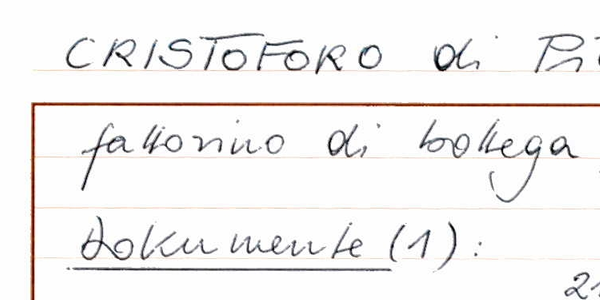 CRISTOFORO di
fattorino di bottega
Dokumente (1):